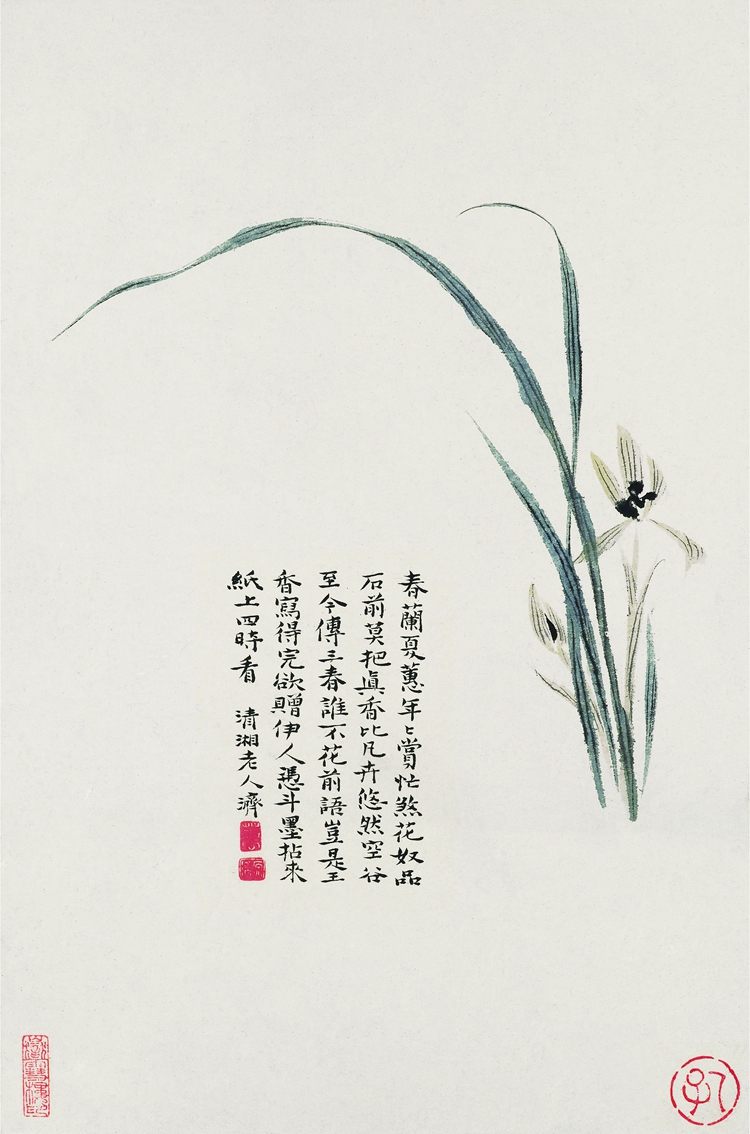 春蘭夏蕙年々賞忙煞花奴品
石前莫把真香比凡卉悠然空谷
至今傳三春誰不花前語豈是王
香寫得完欲贈伊人憑斗墨拈來
紙上四時看
清湘老人濟